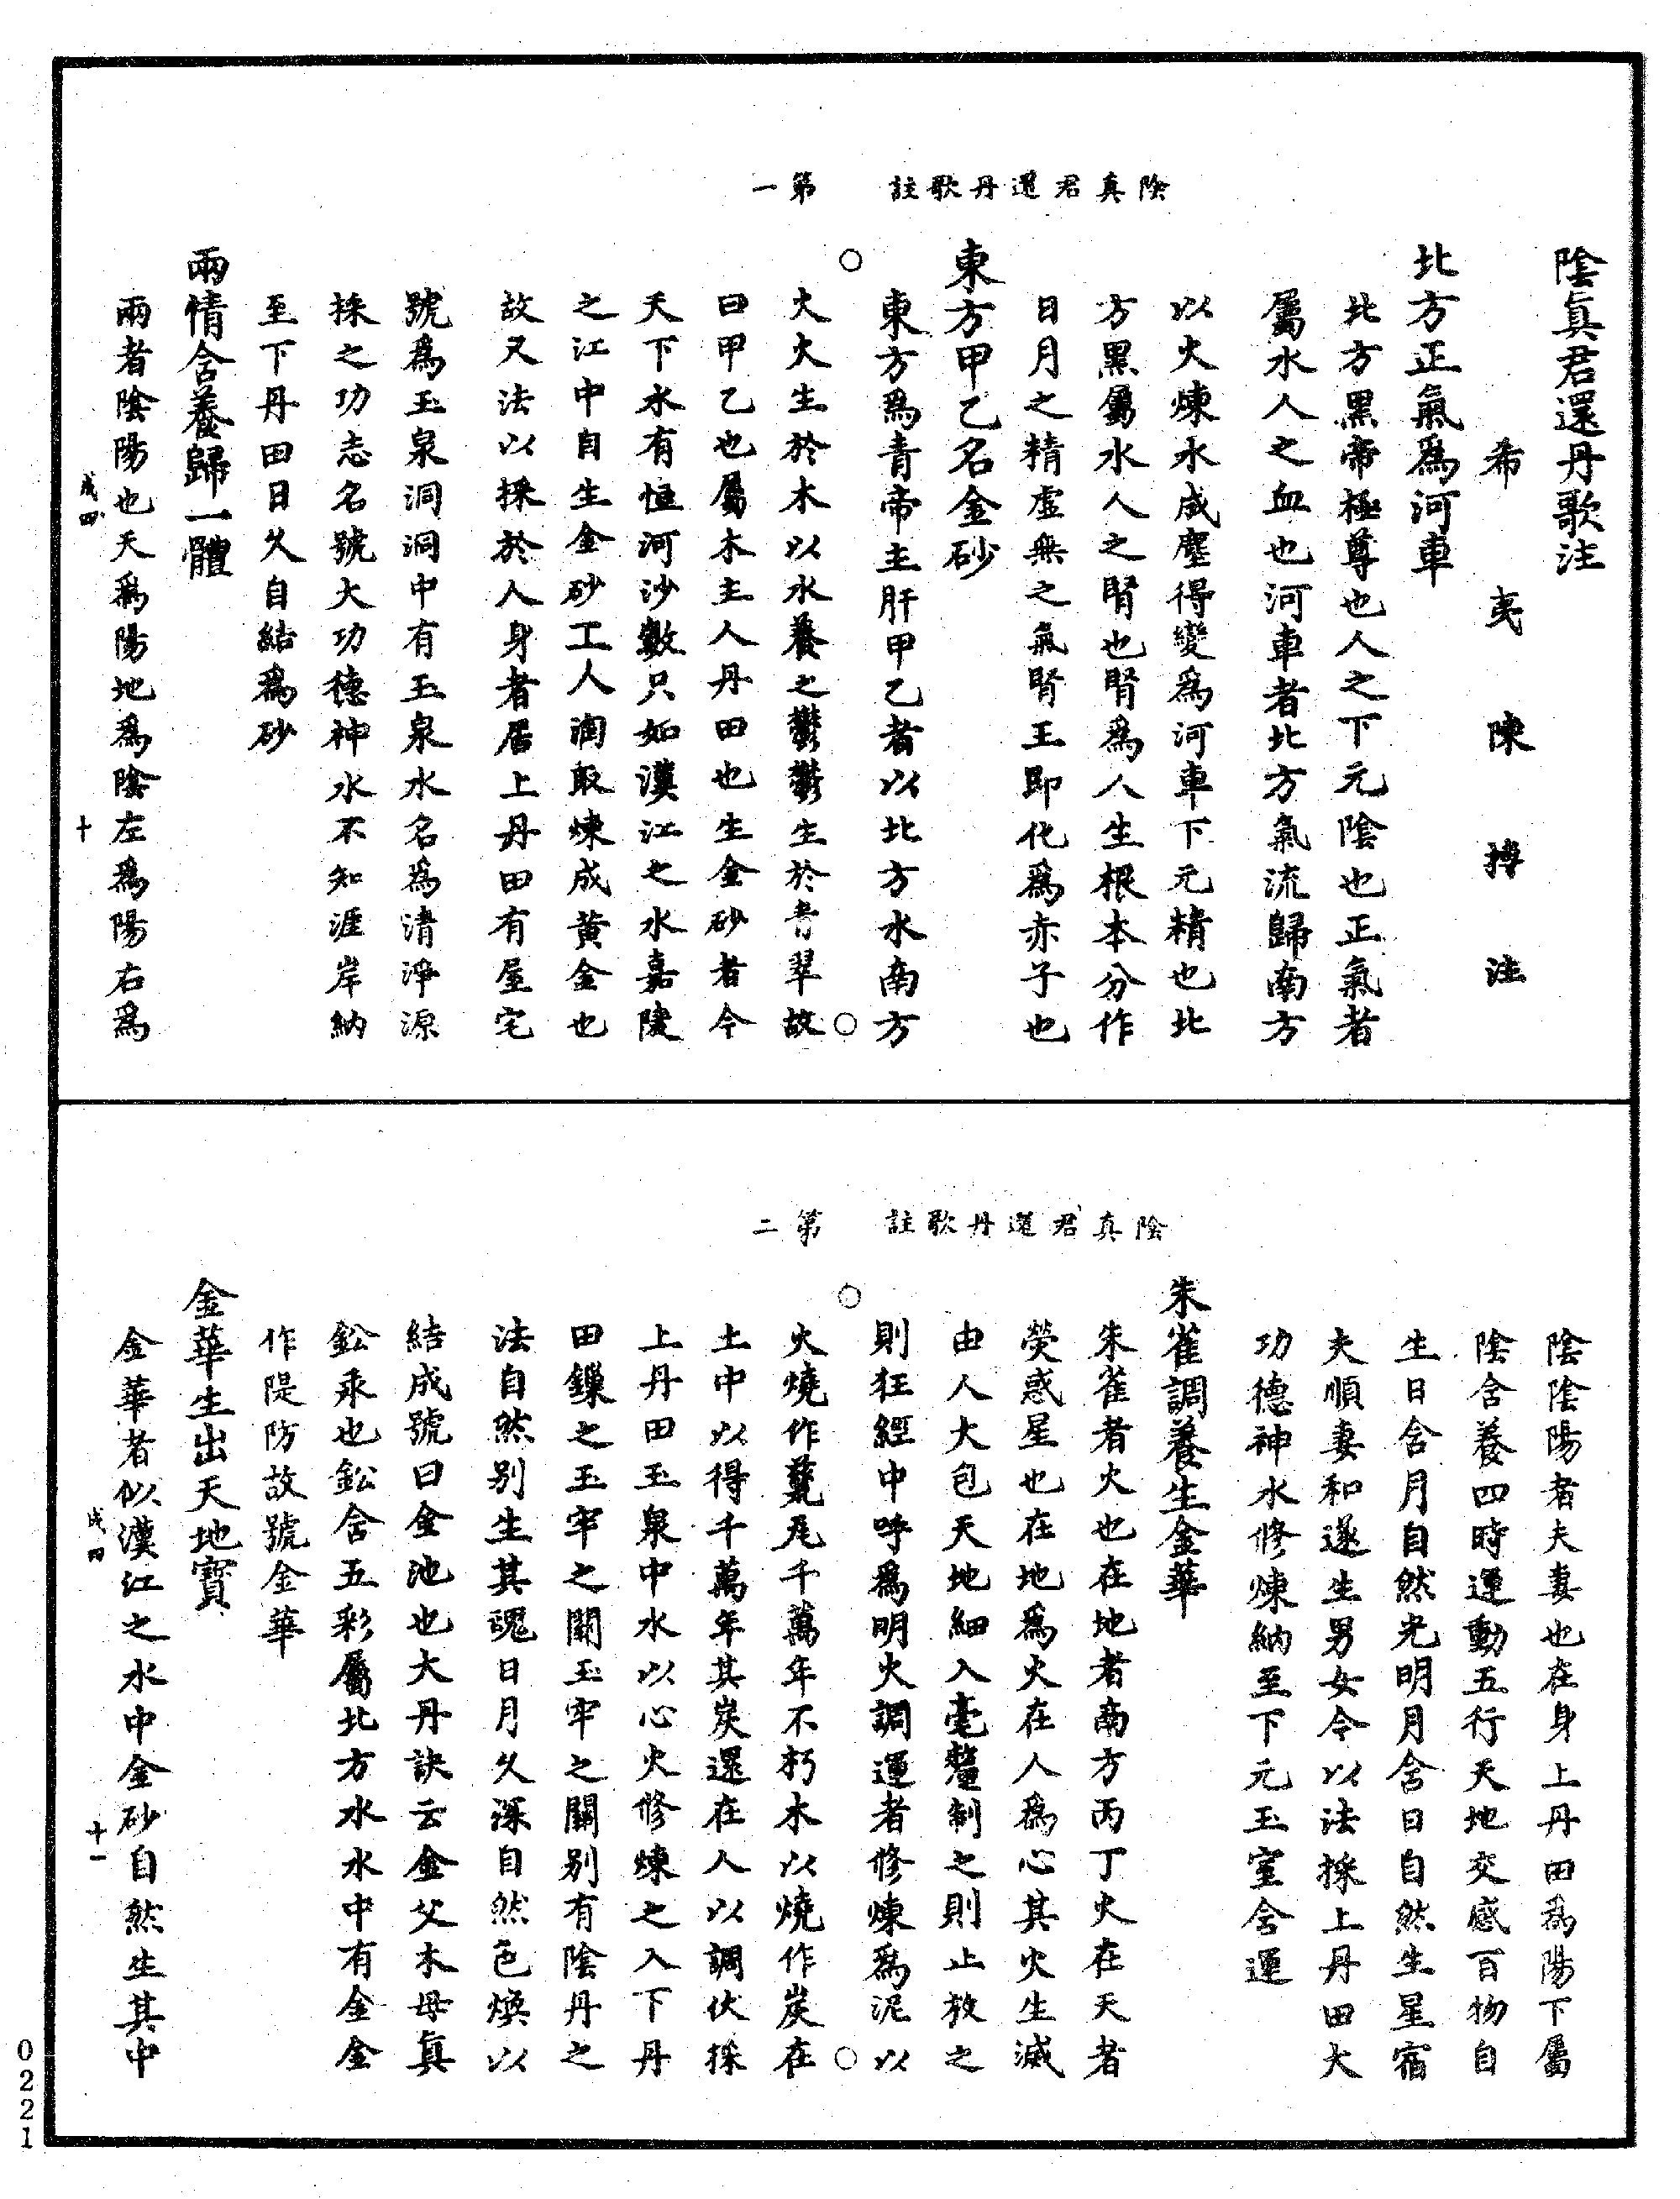 陰真君還丹歌註　第一
陰真君還丹歌注
希夷陳摶注
北方正氣爲河車
北方黑帝極尊也人之下元陰也正氣者
屬水人之血也河車者北方氣流歸南方
以火煉水成塵得變爲河車下元精也北
方黑屬水人之腎也腎爲人生根本分作
日月之精虛無之氣腎王即化爲赤子也
東方甲乙名金砂
東方爲青帝主肝甲乙者以北方水南方
火火生於木以水養之鬱鬱生於青翠故
曰甲乙也屬木主人丹田也生金砂者今
天下水有恒河沙數只如漢江之水嘉陵
之江中自生金砂工人淘取煉成黃金也
故又法以採於人身者居上丹田有屋宅
號爲玉泉洞洞中有玉泉水名爲清淨源
採之功志名號大功德神水不知涯岸納
至下丹田日久自結爲砂
兩情含養歸一體
兩者陰陽也天爲陽地爲陰左爲陽右爲
成四
十
陰真君還丹歌註　第二
陰陰陽者夫妻也在身上丹田爲陽下屬
陰含養四時運動五行天地交感百物自
生日含月自然光明月含日自然生星宿
夫順妻和遂生男女令以法採上丹田大
功德神水修煉納至下元玉室含運
朱雀調養生金華
朱雀者火也在地者南方丙丁火在天者
熒惑星也在地爲火在人爲心其火生滅
由人大包天地細入毫釐制之則止放之
則狂經中呼爲明火調運者修煉爲泥以
火燒作甕瓦千萬年不朽木以燒作炭在
土中以得千萬年其炭還在人以調伏採
上丹田玉泉中水以心火修煉之入下丹
田鏁之玉牢之關玉牢之關别有陰丹之
法自然别生其魂日月久深自然色煥以
結成號曰金池也大丹訣云金父木母真
鈆汞也鈆含五彩屬北方水水中有金金
作隄防故號金華
金華生出天地寶
金華者似漢江之水中金砂自然生其中
成四
十一
0221